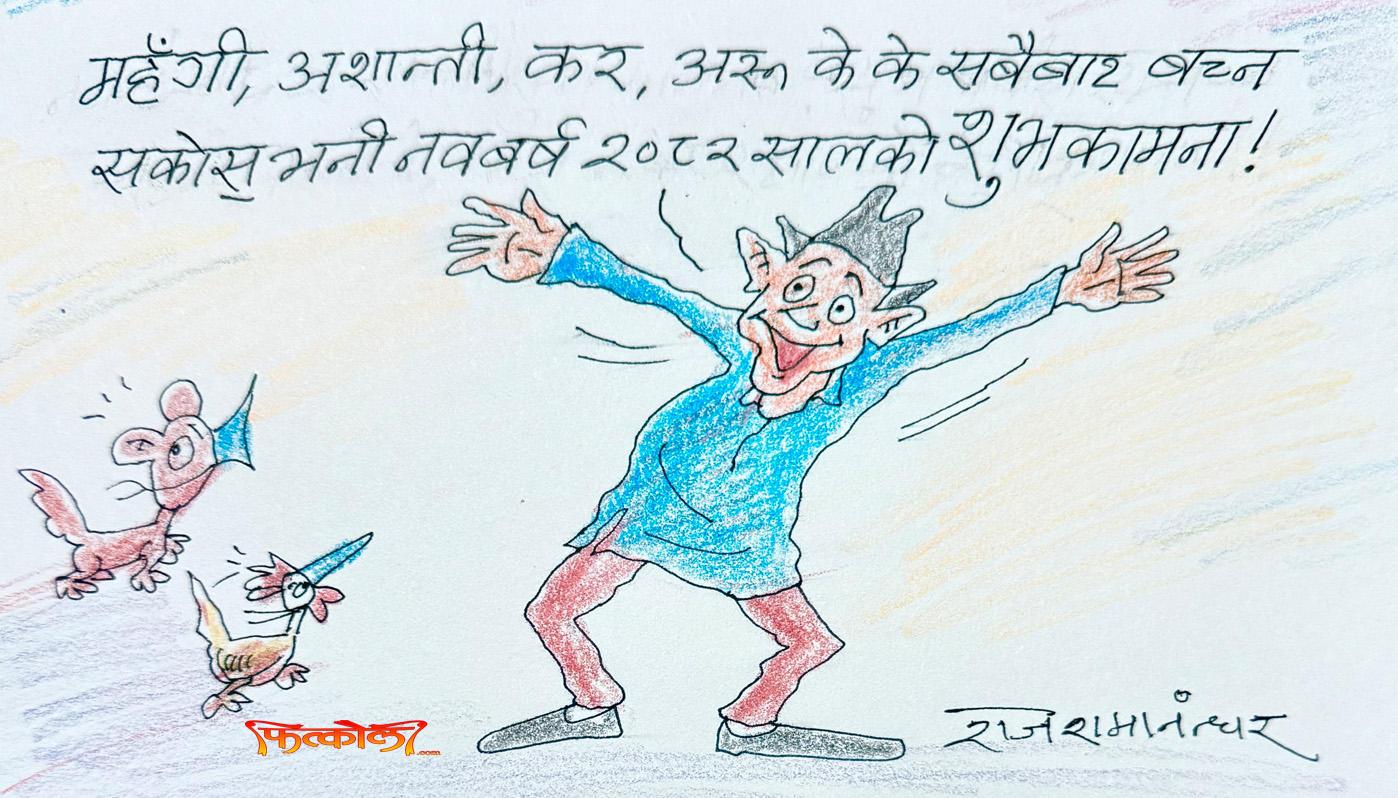 महँगी, अशान्ती, कर, अरू के के सबैबाट बच्न
सकोस् भनी नवबर्ष २०८२ सालको शुभकामना!
फित्कौली.com
राजशमानंन्धर